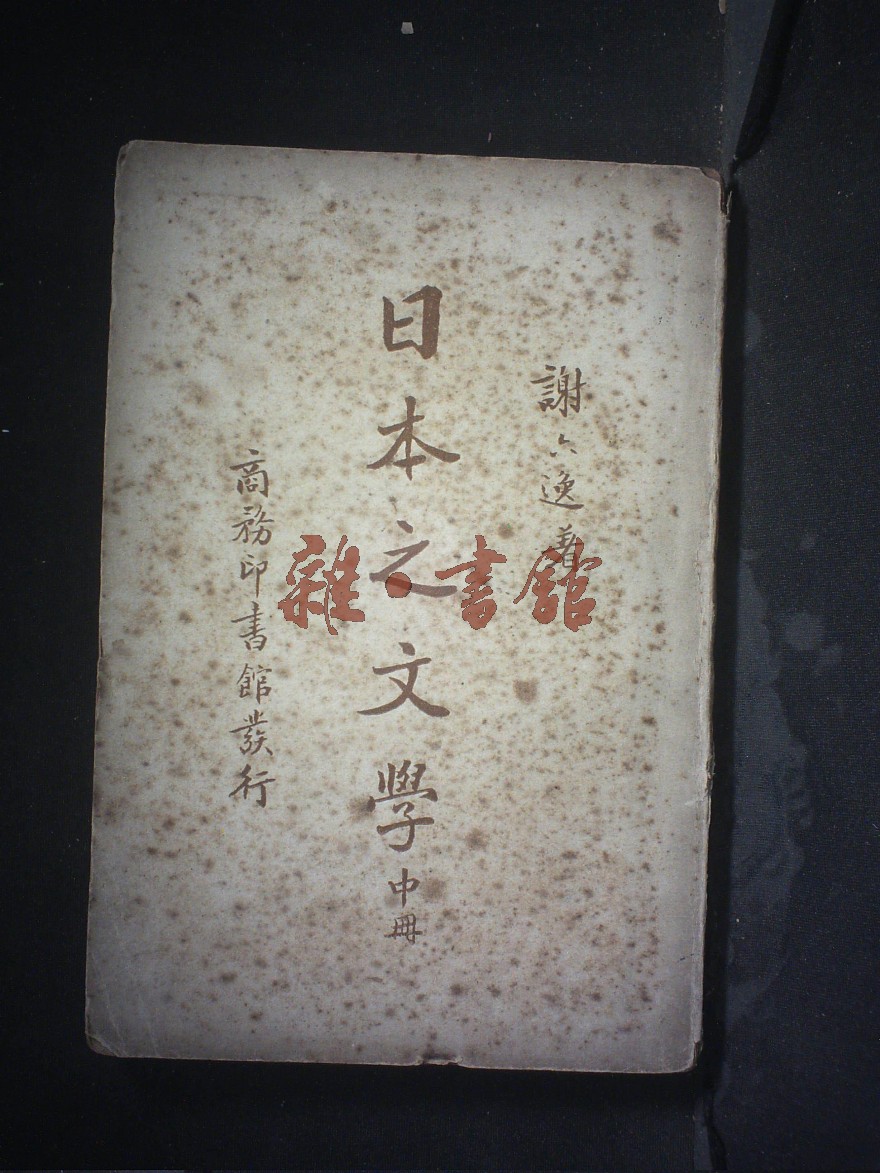 謝六逸著
日本之文學 中冊
商務印書館發行
雜·書館